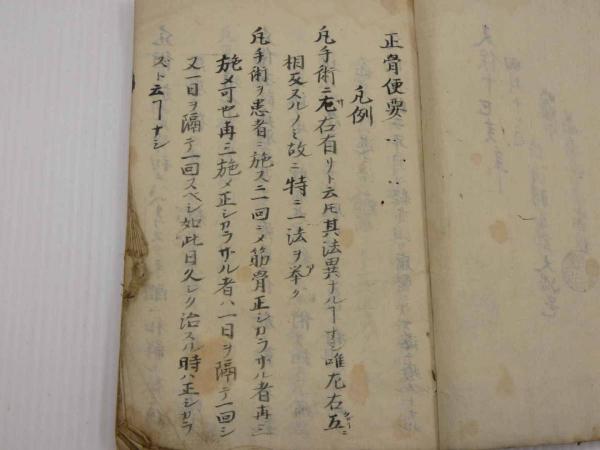 正骨便要
凡例
凡手術ニ左右有リト云𪜈其法異ナルヿナシ唯左右互ニ
相反スルノミ故ニ特ニ一法ヲ挙ク
凡手術ヲ患者ニ施スニ一回ニメ筋骨正シカラサル者再三
施メ可也再三施メ正シカラサル者ハ一日ヲ隔テ一回シ
又一日ヲ隔テ一回スベシ如此日久シク治スル時ハ正シカラ
ズト云ヿナシ